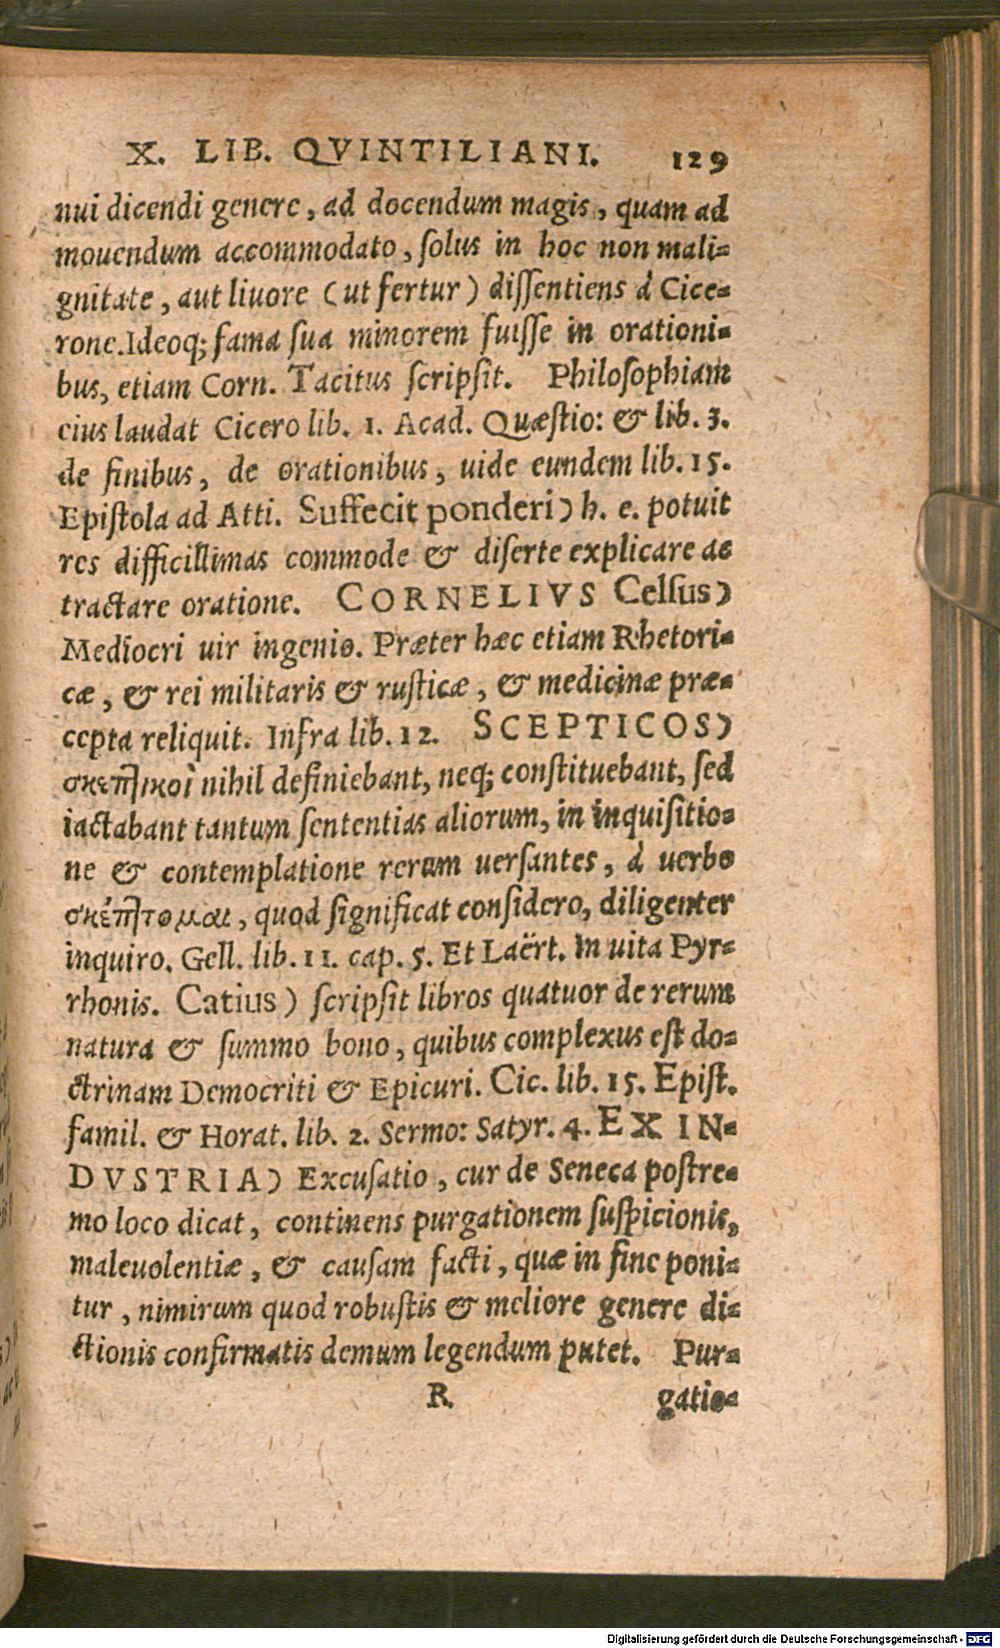 X. LIB. QVINTILIANI. 129
nui dicendi genere, ad docendum magis, quam ad
mouendum accommodato, solus in hoc non mali-
gnitate, aut liuore (ut fertur) dissentiens à Cice-
rone. Ideoq; fama sua minorem fuisse in orationi-
bus, etiam Corn. Tacitus scripsit. Philosophiam
eius laudat Cicero lib. 1. Acad. Quæstio: & lib. 3.
de finibus, de orationibus, uide eundem lib. 15.
Epistola ad Atti. Suffecit ponderi) h. e. potuit
res difficillimas commode & diserte explicare ac
tractare oratione. CORNELIVS Celsus)
Mediocri uir ingenio. Præter hæc etiam Rhetori-
cæ, & rei militaris & rusticæ, & medicinæ præ-
cepta reliquit. Infra lib. 12. SCEPTICOS)
σκεπτικοὶ nihil definiebant, neq; constituebant, sed
iactabant tantum sententias aliorum, in inquisitio-
ne & contemplatione rerum uersantes, à uerbo
σκέπτομαι, quod significat considero, diligenter
inquiro. Gell. lib. 11. cap. 5. Et Laërt. in uita Pyr-
rhonis. Catius) scripsit libros quatuor de rerum
natura & summo bono, quibus complexus est do-
ctrinam Democriti & Epicuri. Cic. lib. 15. Epist.
famil. & Horat. lib. 2. Sermo: Satyr. 4. EX IN-
DVSTRIA) Excusatio, cur de Seneca postre-
mo loco dicat, continens purgationem suspicionis,
maleuolentiæ, & causam facti, quæ in fine poni-
tur, nimirum quod robustis & meliore genere di-
ctionis confirmatis demum legendum putet. Pur-
R gatio-
Digitalisierung gefördert durch die Deutsche Forschungsgemeinschaft - DFG